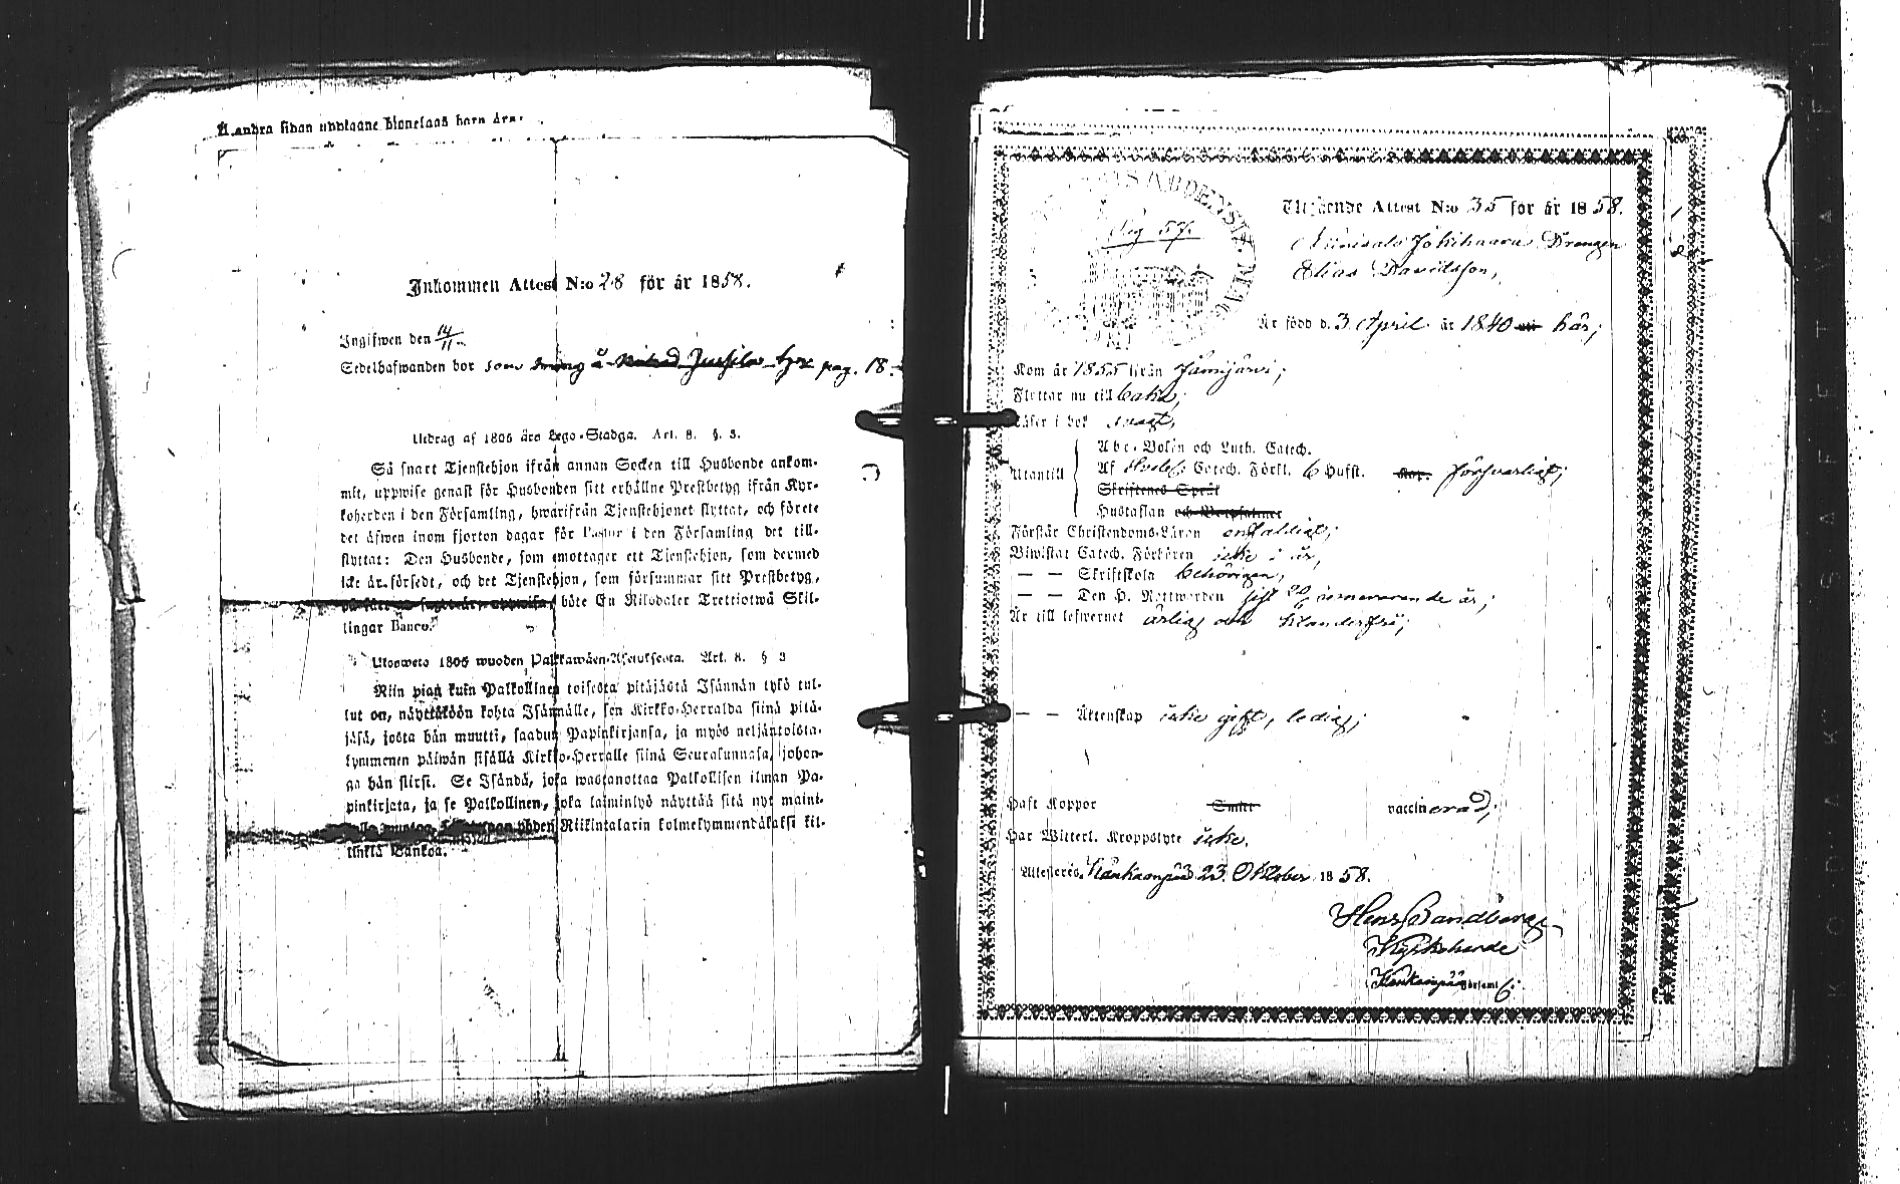 Å andra sidan upptagne Bionefaas barn äro:
Inkommen Attest N:o 28 för år 1858.
Ingifwen den 14/11
Sedelhafwanden bor som dräng å Jussila pag. 18.
Utdrag af 1805 års Lego-Stadga. Art. 8. §. 3.
Så snart Tjenstehjon ifrån annan Socken till Husbonde ankom-
mit, uppwise genast för Husbonden sitt erhållne Prestbetyg ifrån Kyr-
koherden i den Församling, hwarifrån Tjenstehjonet flyttat, och förete
det äfwen inom fjorton dagar för Pastor i den Församling det till-
flyttat: Den Husbonde, som emottager ett Tjenstehjon, som dermed
icke är försedt, och det Tjenstehjon, som försummar sitt Prestbetyg,
på sätt uppwisa, böte En Riksdaler Trettiotwå Skil-
lingar Banco.
Ulosweto 1805 wuoden Palkkawäen-Asetuksesta. Art. 8. § 3
Niin pian kuin Palkollinen toisesta pitäjästä Isännän tykö tul-
lut on, näyttäköön kohta Isännälle, sen Kirkko-Herralda siinä pitä-
jäsä, josta hän muutti, saadun Papinkirjansa, ja myös neljäntoista-
kymmenen päiwän sisällä Kirkko-Herralle siinä Seurakunnasa, johon-
ga hän siirsi. Se Isändä, joka wastanottaa Palkollisen ilman Pa-
pinkirjata, ja se Palkollinen, joka laiminlyö näyttää sitä nyt maini-
yhden Riikintalarin kolmekymmendäkaksi kil-
linkiä Bankoa.
Utgående Attest N:o 35 för år 1858.
Pag 57.
Jokihaara Drängen
Elias Davidsson,
Är född d. 3 April år 1840 här;
Kom år 1855 ifrån Jämijärvi;
Flyttar nu till baka;
Läser i bok svagt,
Utantill
Abc-Boken och Luth. Catech.
Af Svebel: Catech. Förkl. 6 Hufst. försvarligt;
Skriftenes Språk
Hustaflan och Botpsalmer
Förstår Christendoms-Läran enfaldigt;
Biwistat Catech. Förhören icke i år,
— — Skriftskola behörigen,
— — Den H. Nattwarden sist innevarande år;
Är till lefwernet ärlig och klanderfri;
— — Äktenskap icke gift, ledig;
Haft Koppor Smitt vaccinerad;
Har Witterl. Kroppslyte icke.
Attesteras, Kankaanpää 23 Oktober 1858.
Henr. Sandberg
Kyrkoherde
Kankaanpää församl.